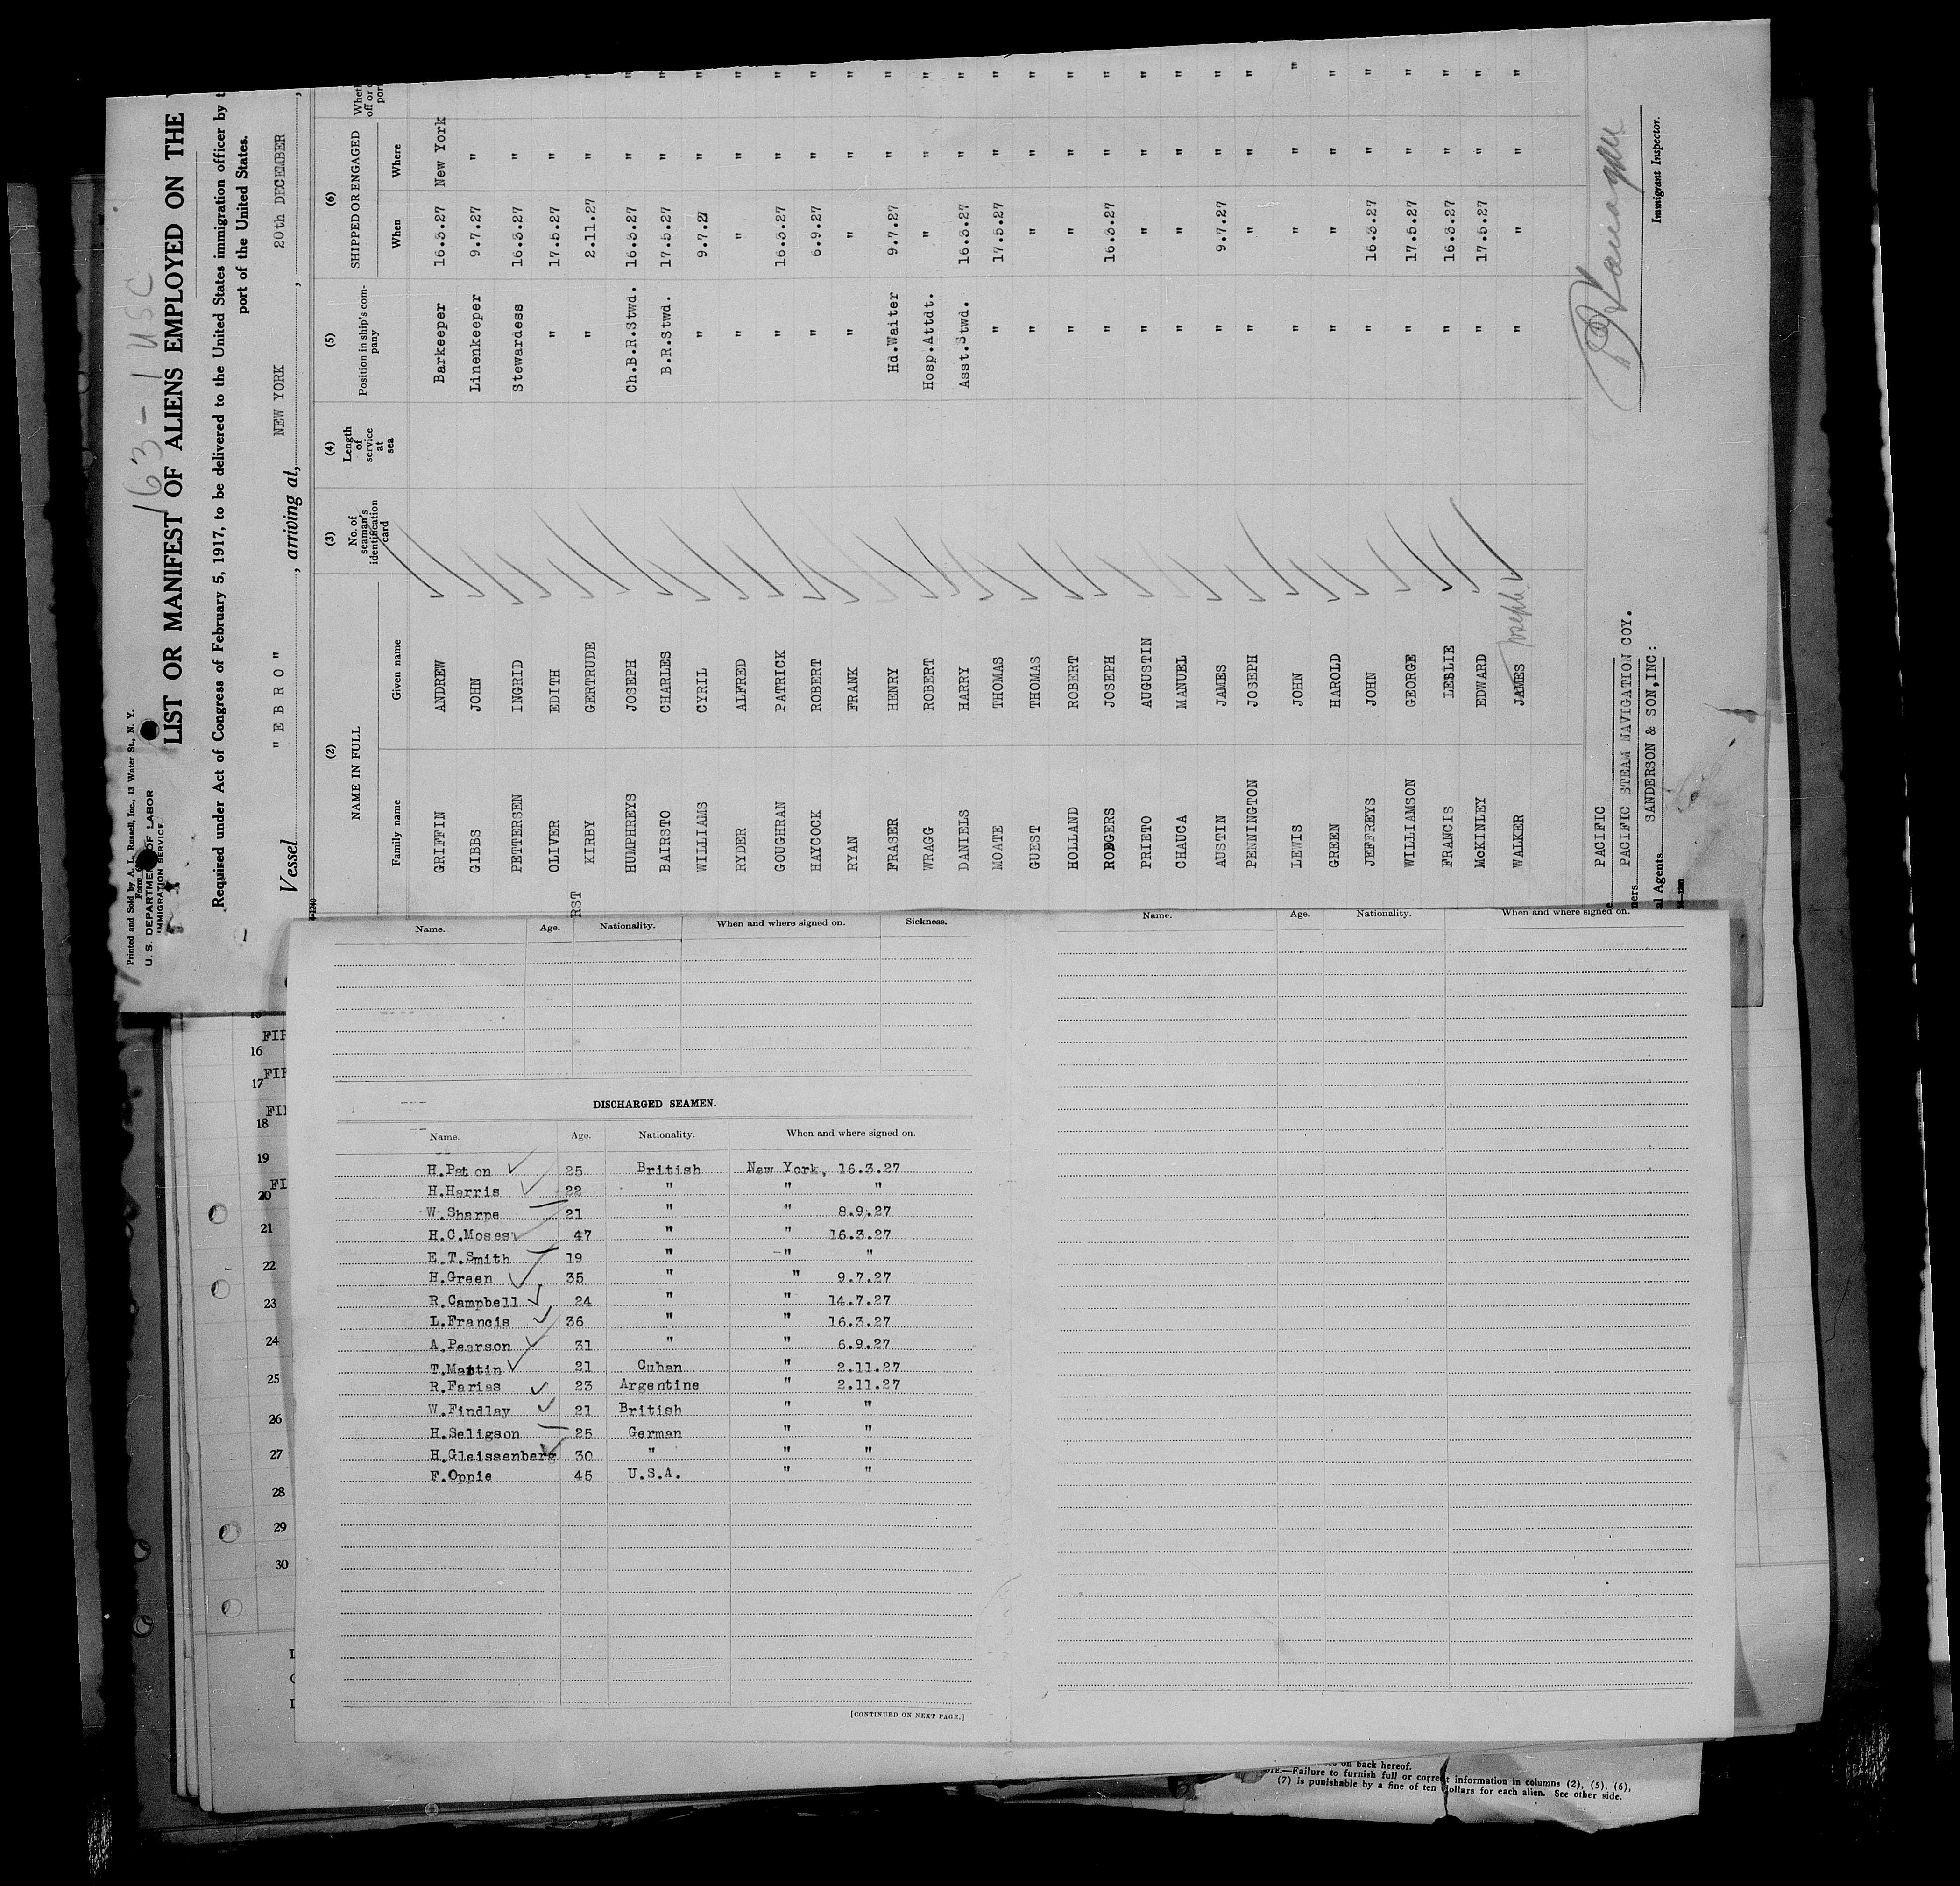 163-1 USC
Printed and Sold by A. L. Russell, Inc., 13 Water St., N. Y.
U. S. DEPARTMENT OF LABOR
IMMIGRATION SERVICE
LIST OR MANIFEST OF ALIENS EMPLOYED ON THE
Required under Act of Congress of February 5, 1917, to be delivered to the United States immigration officer by t
port of the United States.
Vessel "EBRO", arriving at, NEW YORK, 20th DECEMBER,
(2) (3) (4) (5) (6)
NAME IN FULL No. of seaman's identification card Length of service at sea Position in ship's company SHIPPED OR ENGAGED
Family name Given name When Where
GRIFFIN ANDREW Barkeeper 16.3.27 New York
GIBBS JOHN Linenkeeper 9.7.27 "
PETTERSEN INGRID Stewardess 16.3.27 "
OLIVER EDITH " 17.5.27 " "
RST KIRBY GERTRUDE " 2.11.27 " "
HUMPHREYS JOSEPH Ch.B.R.Stwd. 16.3.27 " "
BAIRSTO CHARLES B.R.Stwd. 17.5.27 " "
WILLIAMS CYRIL " 9.7.27 " "
RYDER ALFRED " " " "
GOUGHRAN PATRICK " 16.3.27 " "
HAYCOCK ROBERT " 6.9.27 " "
RYAN FRANK " " " "
FRASER HENRY Hd.Waiter 9.7.27 " "
WRAGG ROBERT Hosp.Attdt. " " "
DANIELS HARRY Asst.Stwd. 16.3.27 " "
MOATE THOMAS " 17.5.27 " "
GUEST THOMAS " " " "
HOLLAND ROBERT " " " "
RODGERS JOSEPH " 16.3.27 " "
PRIETO AUGUSTIN " " " "
CHAUCA MANUEL " " " "
AUSTIN JAMES " 9.7.27 " "
PENNINGTON JOSEPH " " " "
LEWIS JOHN " " " "
GREEN HAROLD " " " "
JEFFREYS JOHN " 16.3.27 " "
WILLIAMSON GEORGE " 17.5.27 " "
FRANCIS LESLIE " 16.3.27 " "
McKINLEY EDWARD " 17.5.27 " "
WALKER JAMES Joseph " " " "
PACIFIC
PACIFIC STEAM NAVIGATION COY.
ners
al Agents SANDERSON & SON, INC:
Immigrant Inspector.
Name. Age. Nationality. When and where signed on. Sickness.
DISCHARGED SEAMEN.
Name. Age. Nationality. When and where signed on.
H.Paton 25 British New York, 16.3.27
H.Harris 22 " " "
W.Sharpe 21 " " 8.9.27
H.C.Moses 47 " " 16.3.27
E.T.Smith 19 " " "
H.Green 35 " " 9.7.27
R.Campbell 24 " " 14.7.27
L.Francis 36 " " 16.3.27
A.Pearson 31 " " 6.9.27
T.Martin 21 Cuban " 2.11.27
R.Farias 23 Argentine " 2.11.27
W.Findlay 21 British " "
H.Seligson 25 German " "
H.Gleissenberg 30 " " "
F.Oppie 45 U.S.A. " "
[CONTINUED ON NEXT PAGE.]
Name. Age. Nationality. When and where signed on.
FIR
16
17 FIR
FI
18
19
FI
20
21
22
23
24
25
26
27
28
29
30
on back hereof.
—Failure to furnish full or correct information in columns (2), (5), (6),
(7) is punishable by a fine of ten dollars for each alien. See other side.